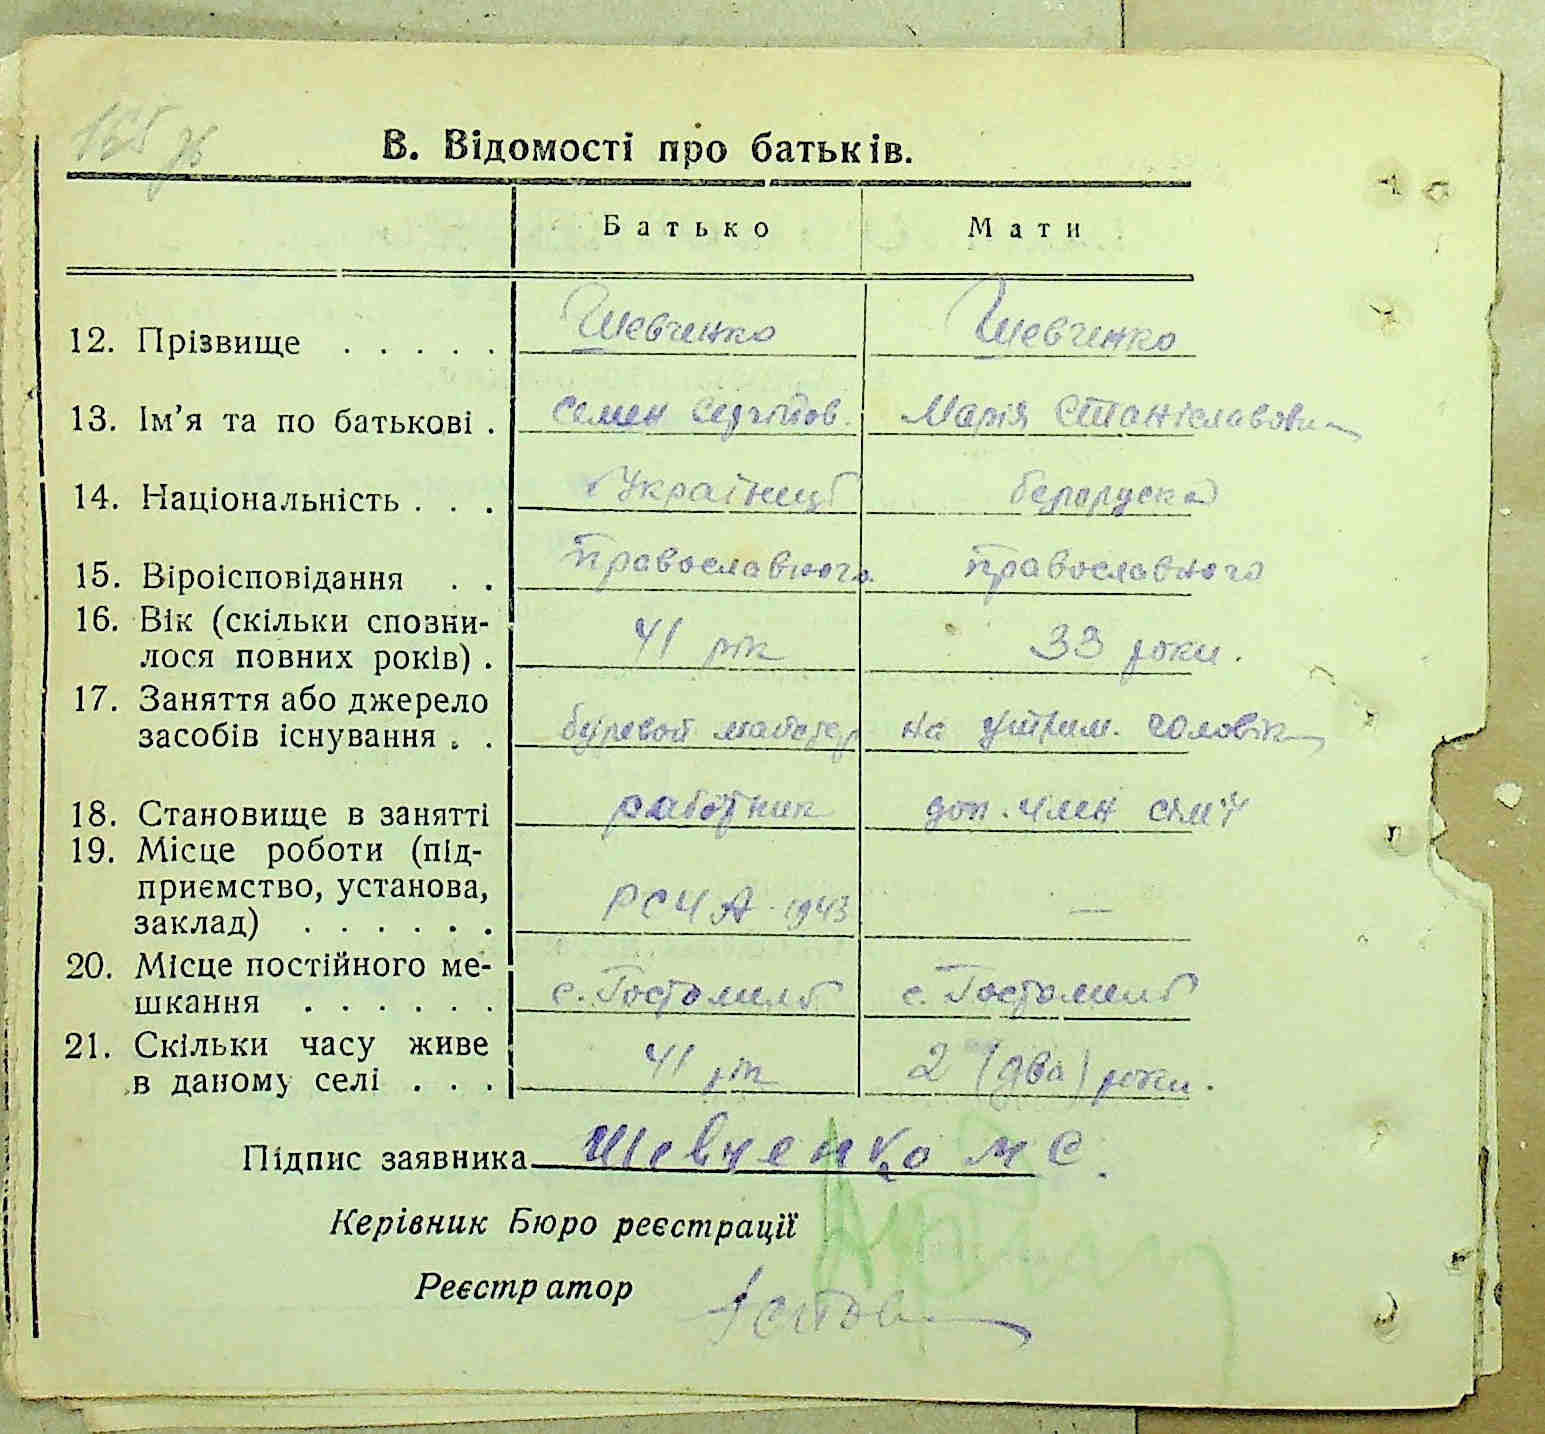 165 зв
В. Відомості про батьків.
Батько Мати
12. Прізвище . . . . . Шевченко Шевченко
13. Ім’я та по батькові . Семен Сергійов. Марія Станіславовн
14. Національність . . . Українець белоруска
15. Віроісповідання . . Православного Православного
16. Вік (скільки спозни-
лося повних років) . 41 рік 33 роки.
17. Заняття або джерело
засобів існування . . буревой майстер на утрим. чоловік
18. Становище в занятті работник доп. член сім'ї
19. Місце роботи (під-
приємство, установа,
заклад) . . . . . . РСЧА 1943 —
20. Місце постійного ме-
шкання . . . . . . с. Гостомель с. Гостомель
21. Скільки часу живе
в даному селі . . . 41 рік 2 (два) роки.
Підпис заявника Шевченко М С.
Керівник Бюро реєстрації
Реєстратор